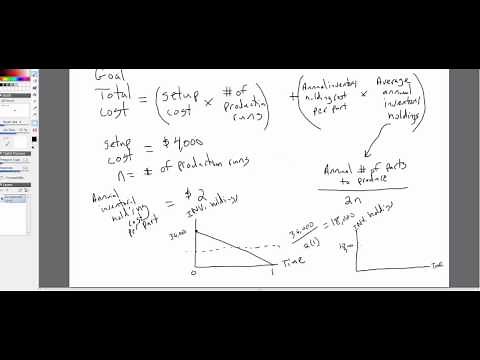 Goal
Total cost = (setup cost × # of production runs) + (Annual inventory holding cost per part × Average annual inventory holdings)
setup cost = $4,000
n = # of production runs
Annual # of parts to produce
2n
Annual inventory holding cost per part = $2
Inv. holdings
36,000
36,000 / 2(1) = 18,000
0
1
Time
Inv. holdings
18,000
Time